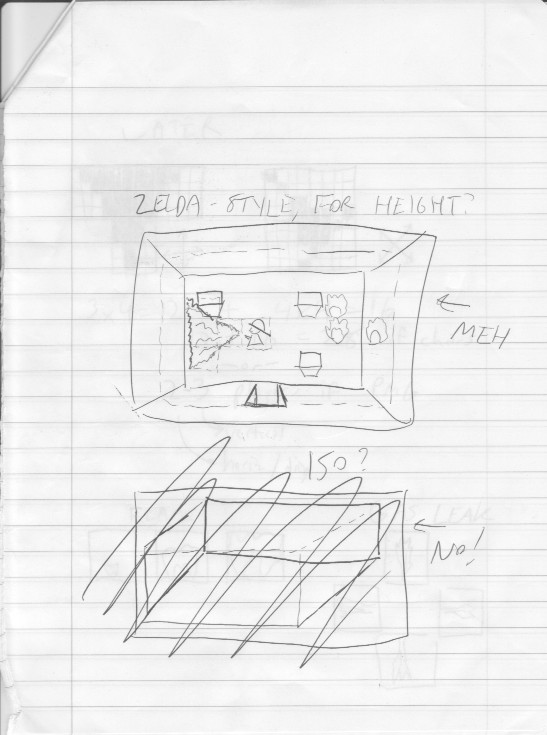 ZELDA-STYLE, FOR HEIGHT?
MEH
ISO?
NO!